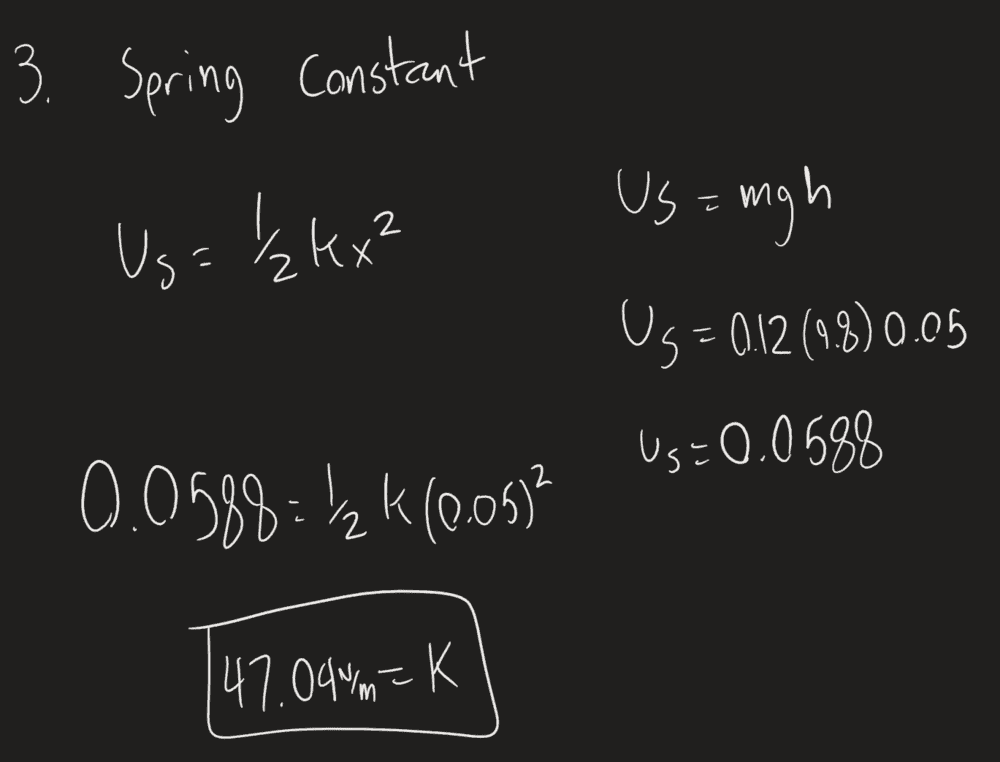 3. Spring Constant
Us = 1/2 kx²
Us = mgh
Us = 0.12 (9.8) 0.05
Us = 0.0588
0.0588 = 1/2 k (0.05)²
47.04 N/m = K